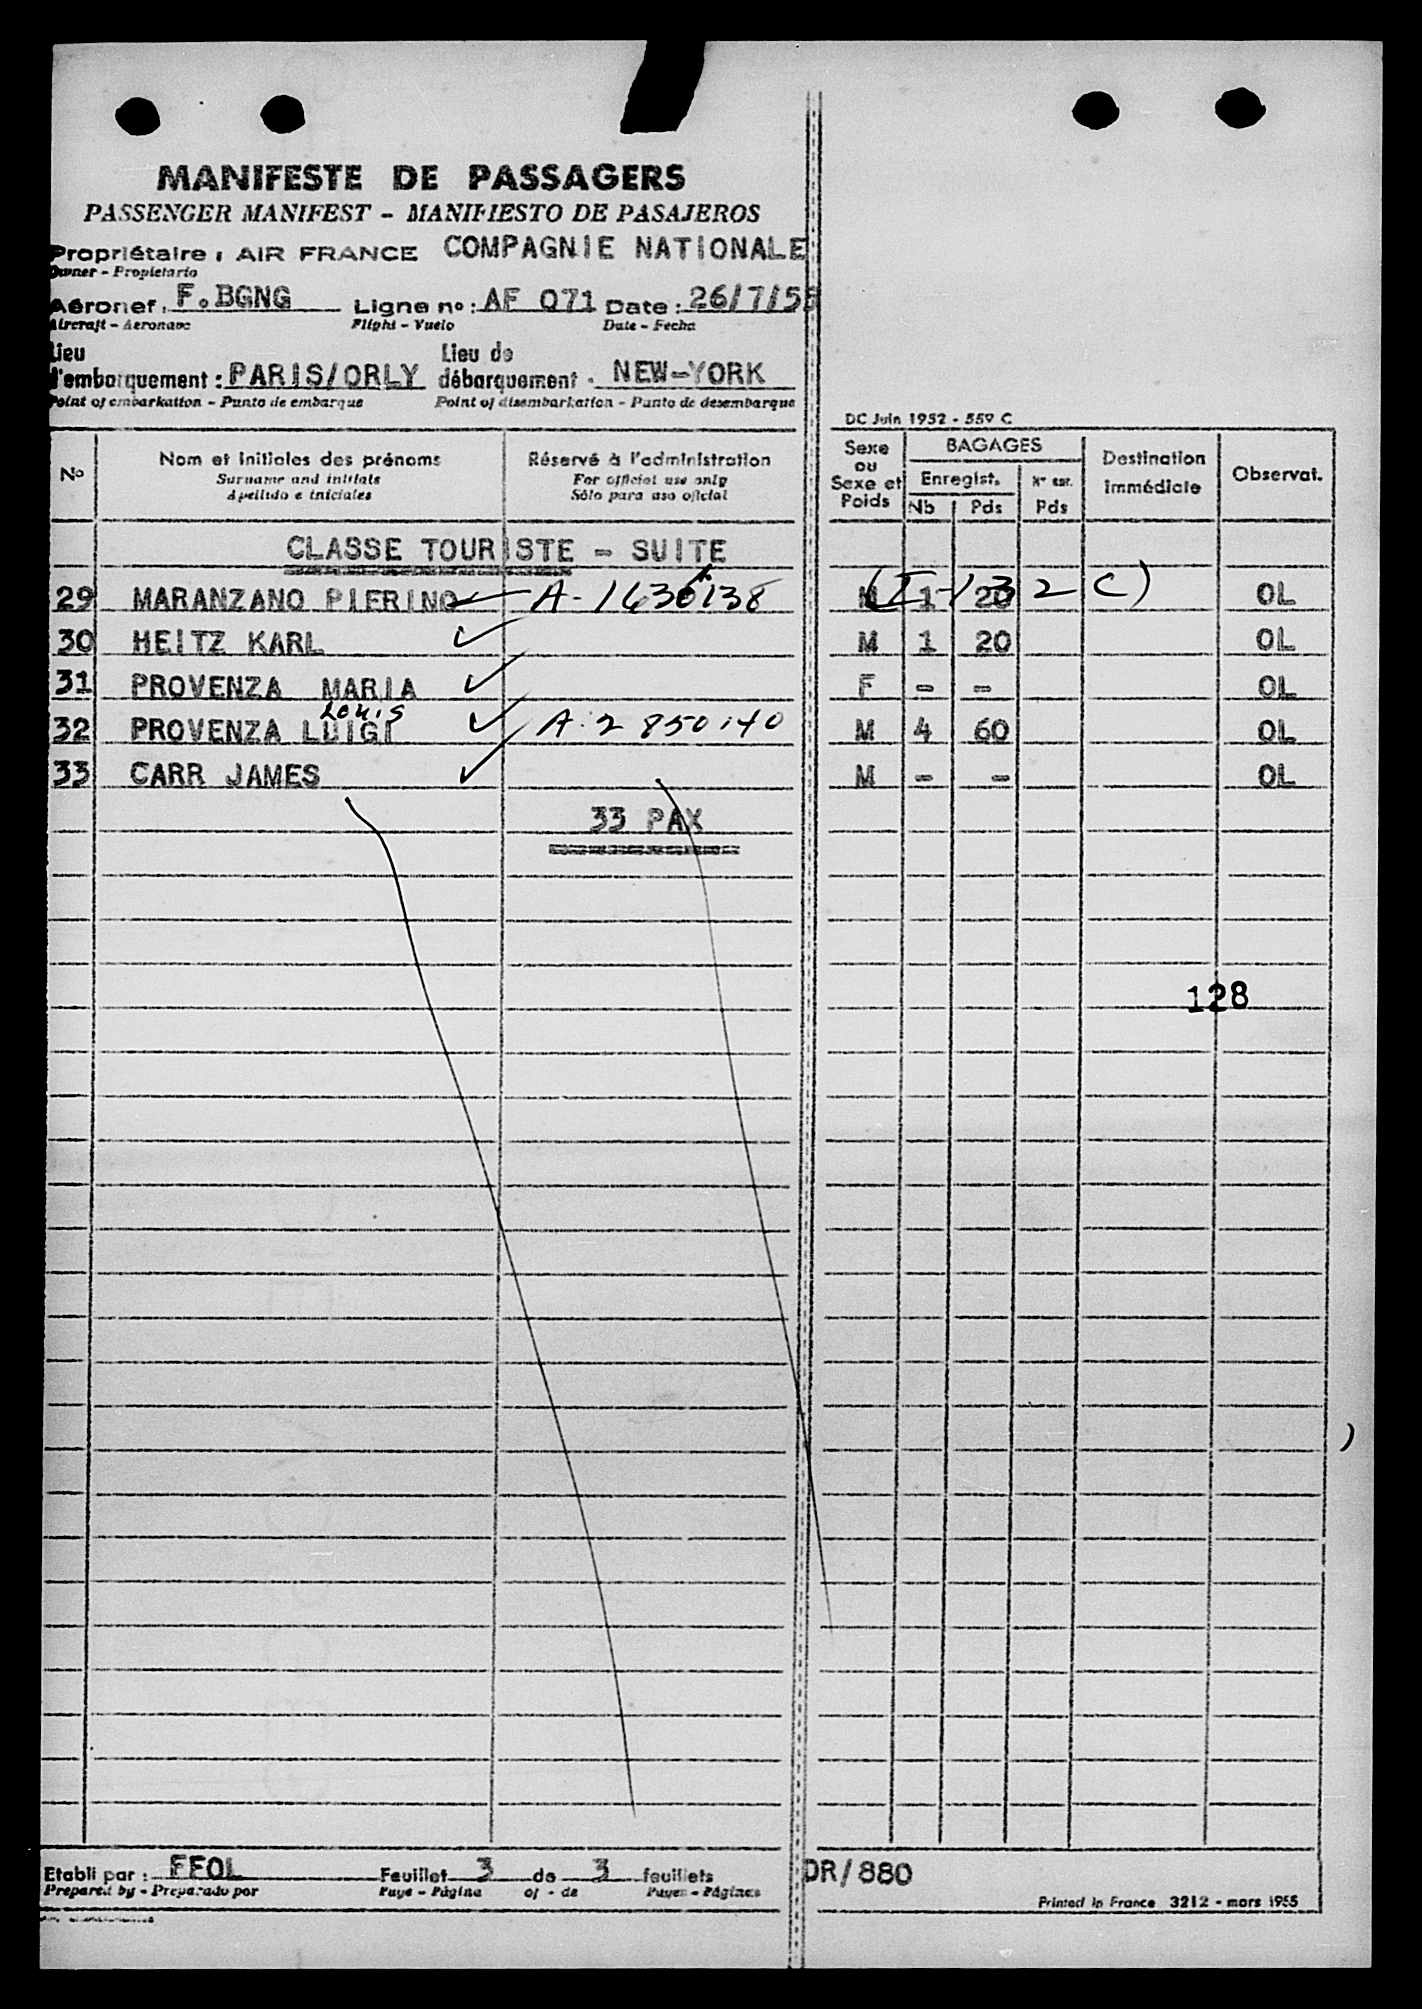 MANIFESTE DE PASSAGERS
PASSENGER MANIFEST - MANIFIESTO DE PASAJEROS
Propriétaire : AIR FRANCE COMPAGNIE NATIONALE
Owner - Propietario
Aéronef : F.BGNG Ligne nº : AF 071 Date : 26/7/55
Aircraft - Aeronave Flight - Vuelo Date - Fecha
Lieu d'embarquement : PARIS/ORLY Lieu de débarquement : NEW-YORK
Point of embarkation - Punto de embarque Point of disembarkation - Punto de desembarque
DC Juin 1952 - 559 C
Nº Nom et initiales des prénoms Réservé à l'administration Sexe ou Sexe et Poids BAGAGES Destination immédiate Observat.
Surname and initials For official use only Enregist. Nº enr.
Apellido e iniciales Sólo para uso oficial Nb Pds Pds
CLASSE TOURISTE - SUITE
29 MARANZANO PIERINO A-1636138 M 1 20 (I-132 C) OL
30 HEITZ KARL M 1 20 OL
31 PROVENZA MARIA F - - OL
Louis
32 PROVENZA LUIGI A-2 850 140 M 4 60 OL
33 CARR JAMES M - - OL
33 PAX
128
Etabli par : FFOL Feuillet 3 de 3 feuillets DR/880
Prepared by - Preparado por Page - Página of - de Pages - Páginas
Printed in France 3212 - mars 1955